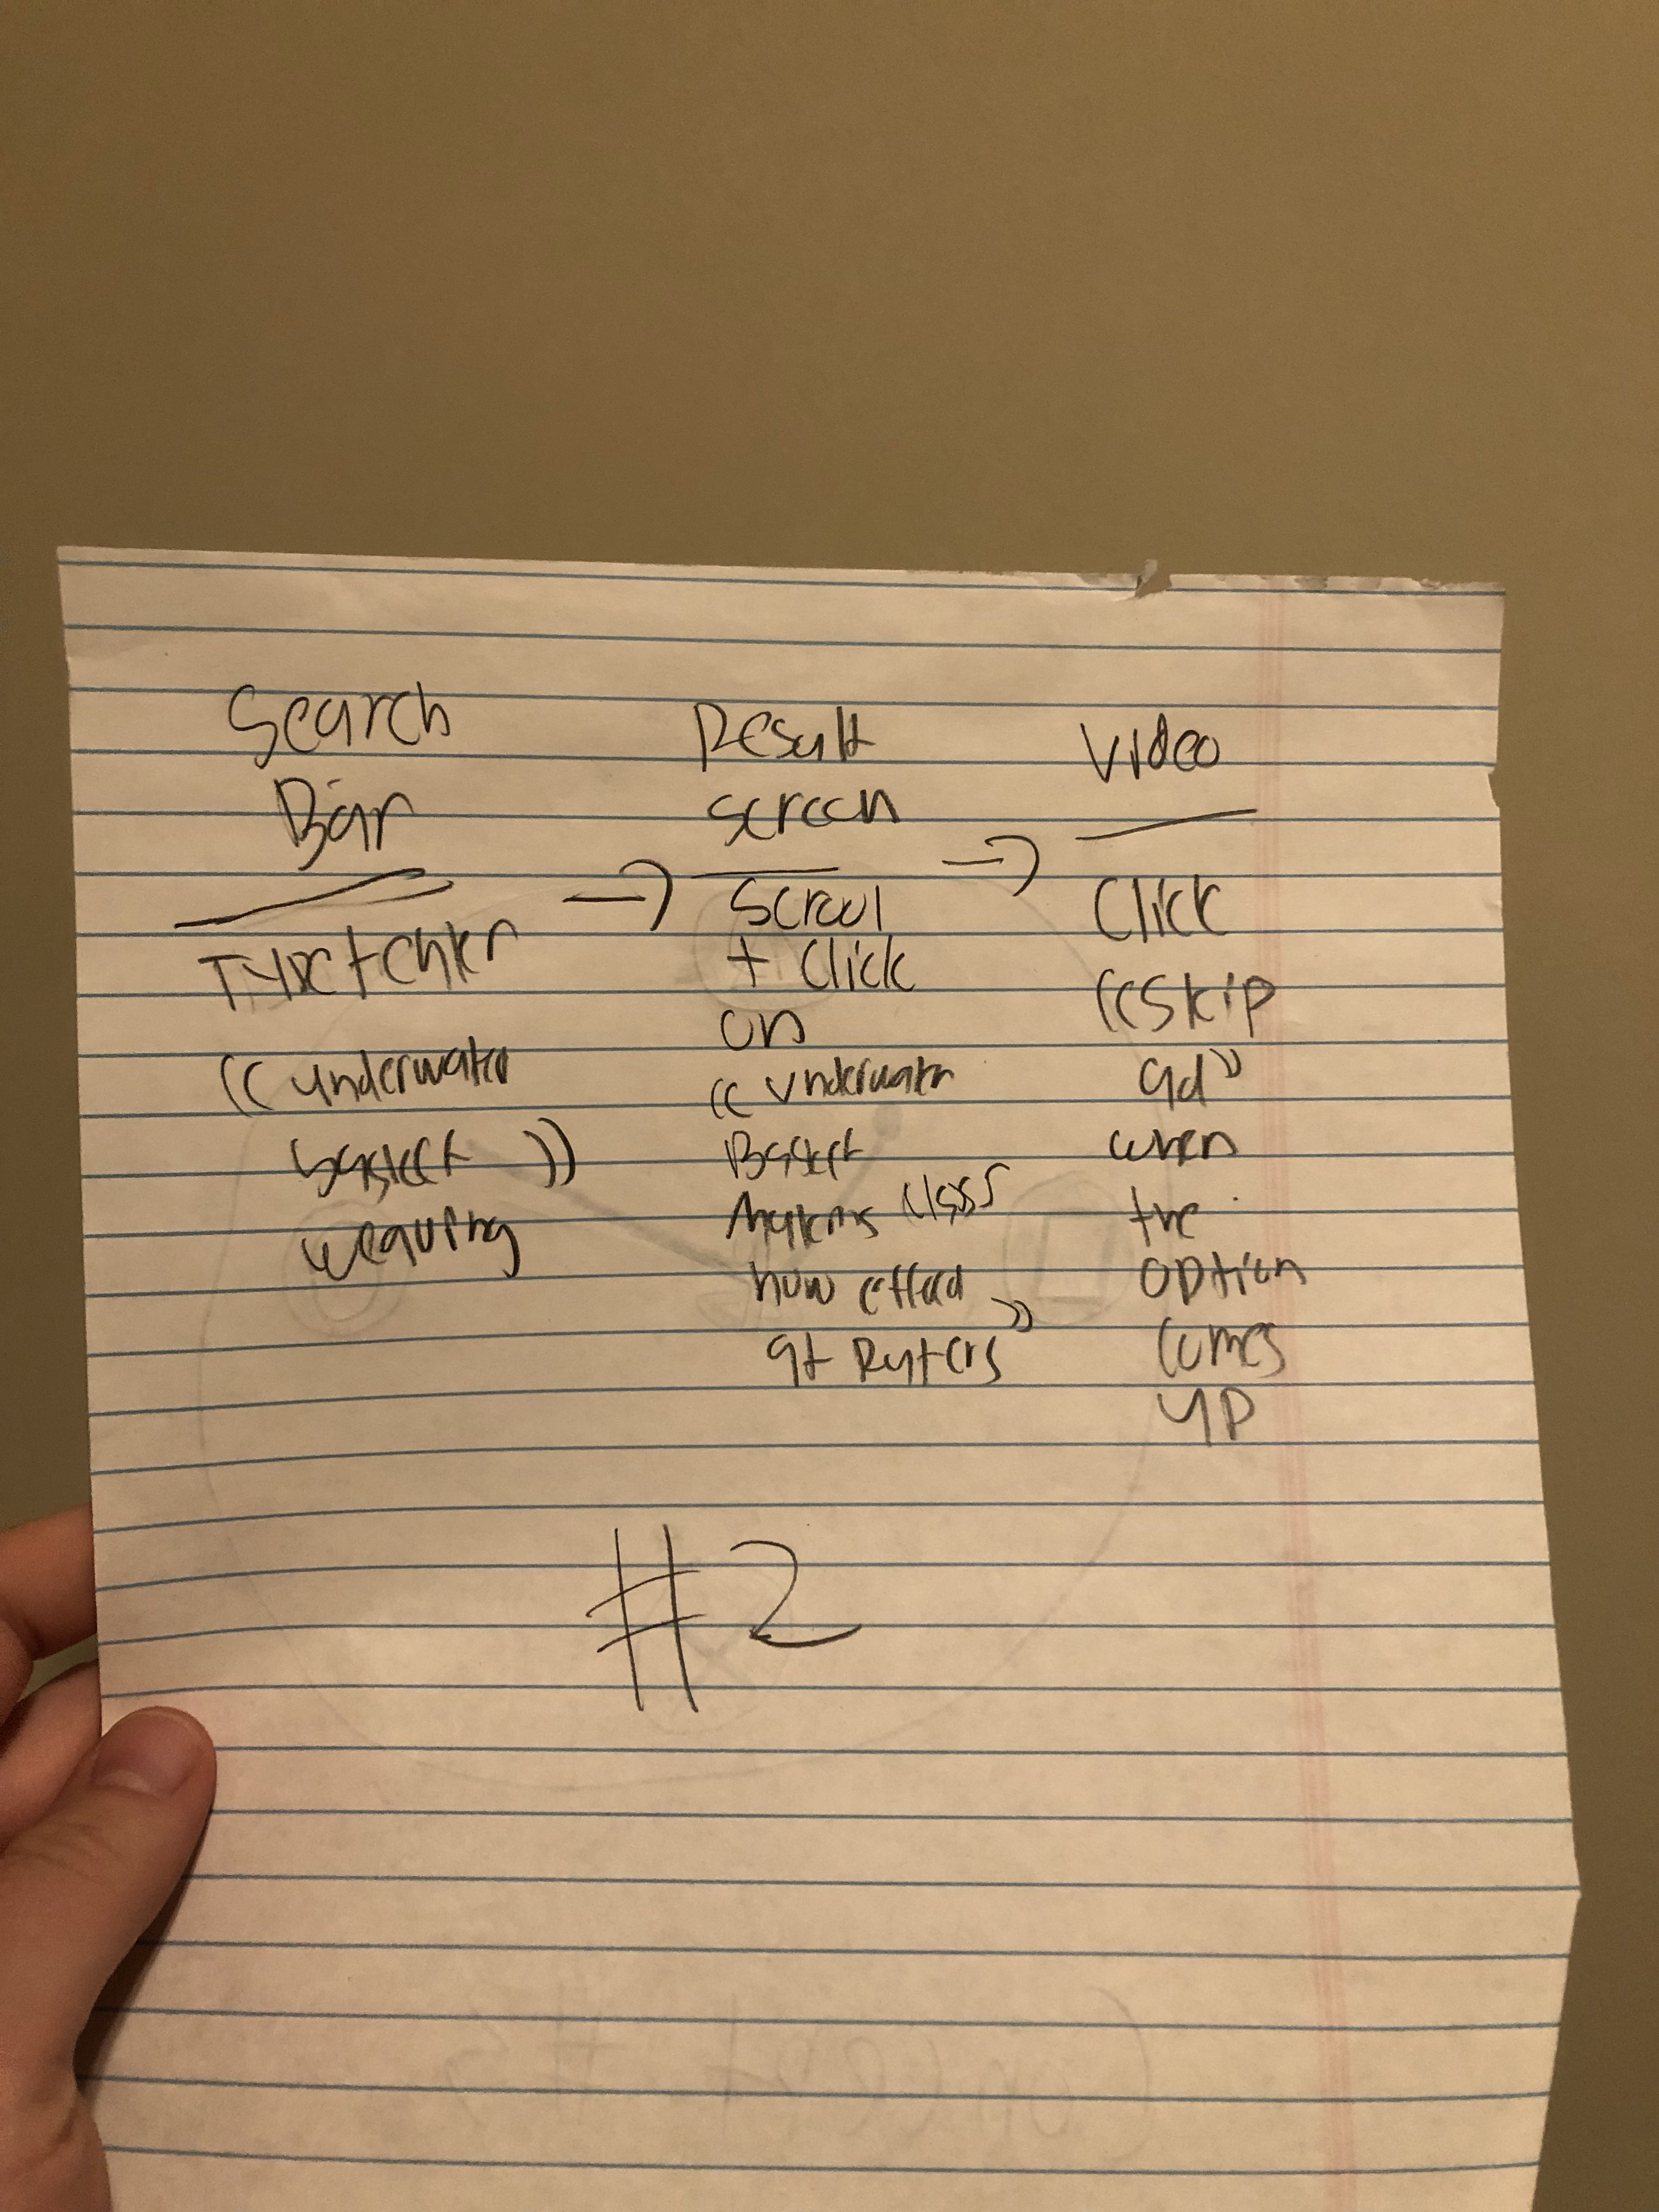 Search
Bar
Type + enter
"underwater
basket"
weaving
Result
screen
Scrool
+ Click
on
"Underwater
Basket
class
how offered
at Rutgers"
Video
Click
"Skip
ad"
when
the
option
comes
up
#2
Concept #3